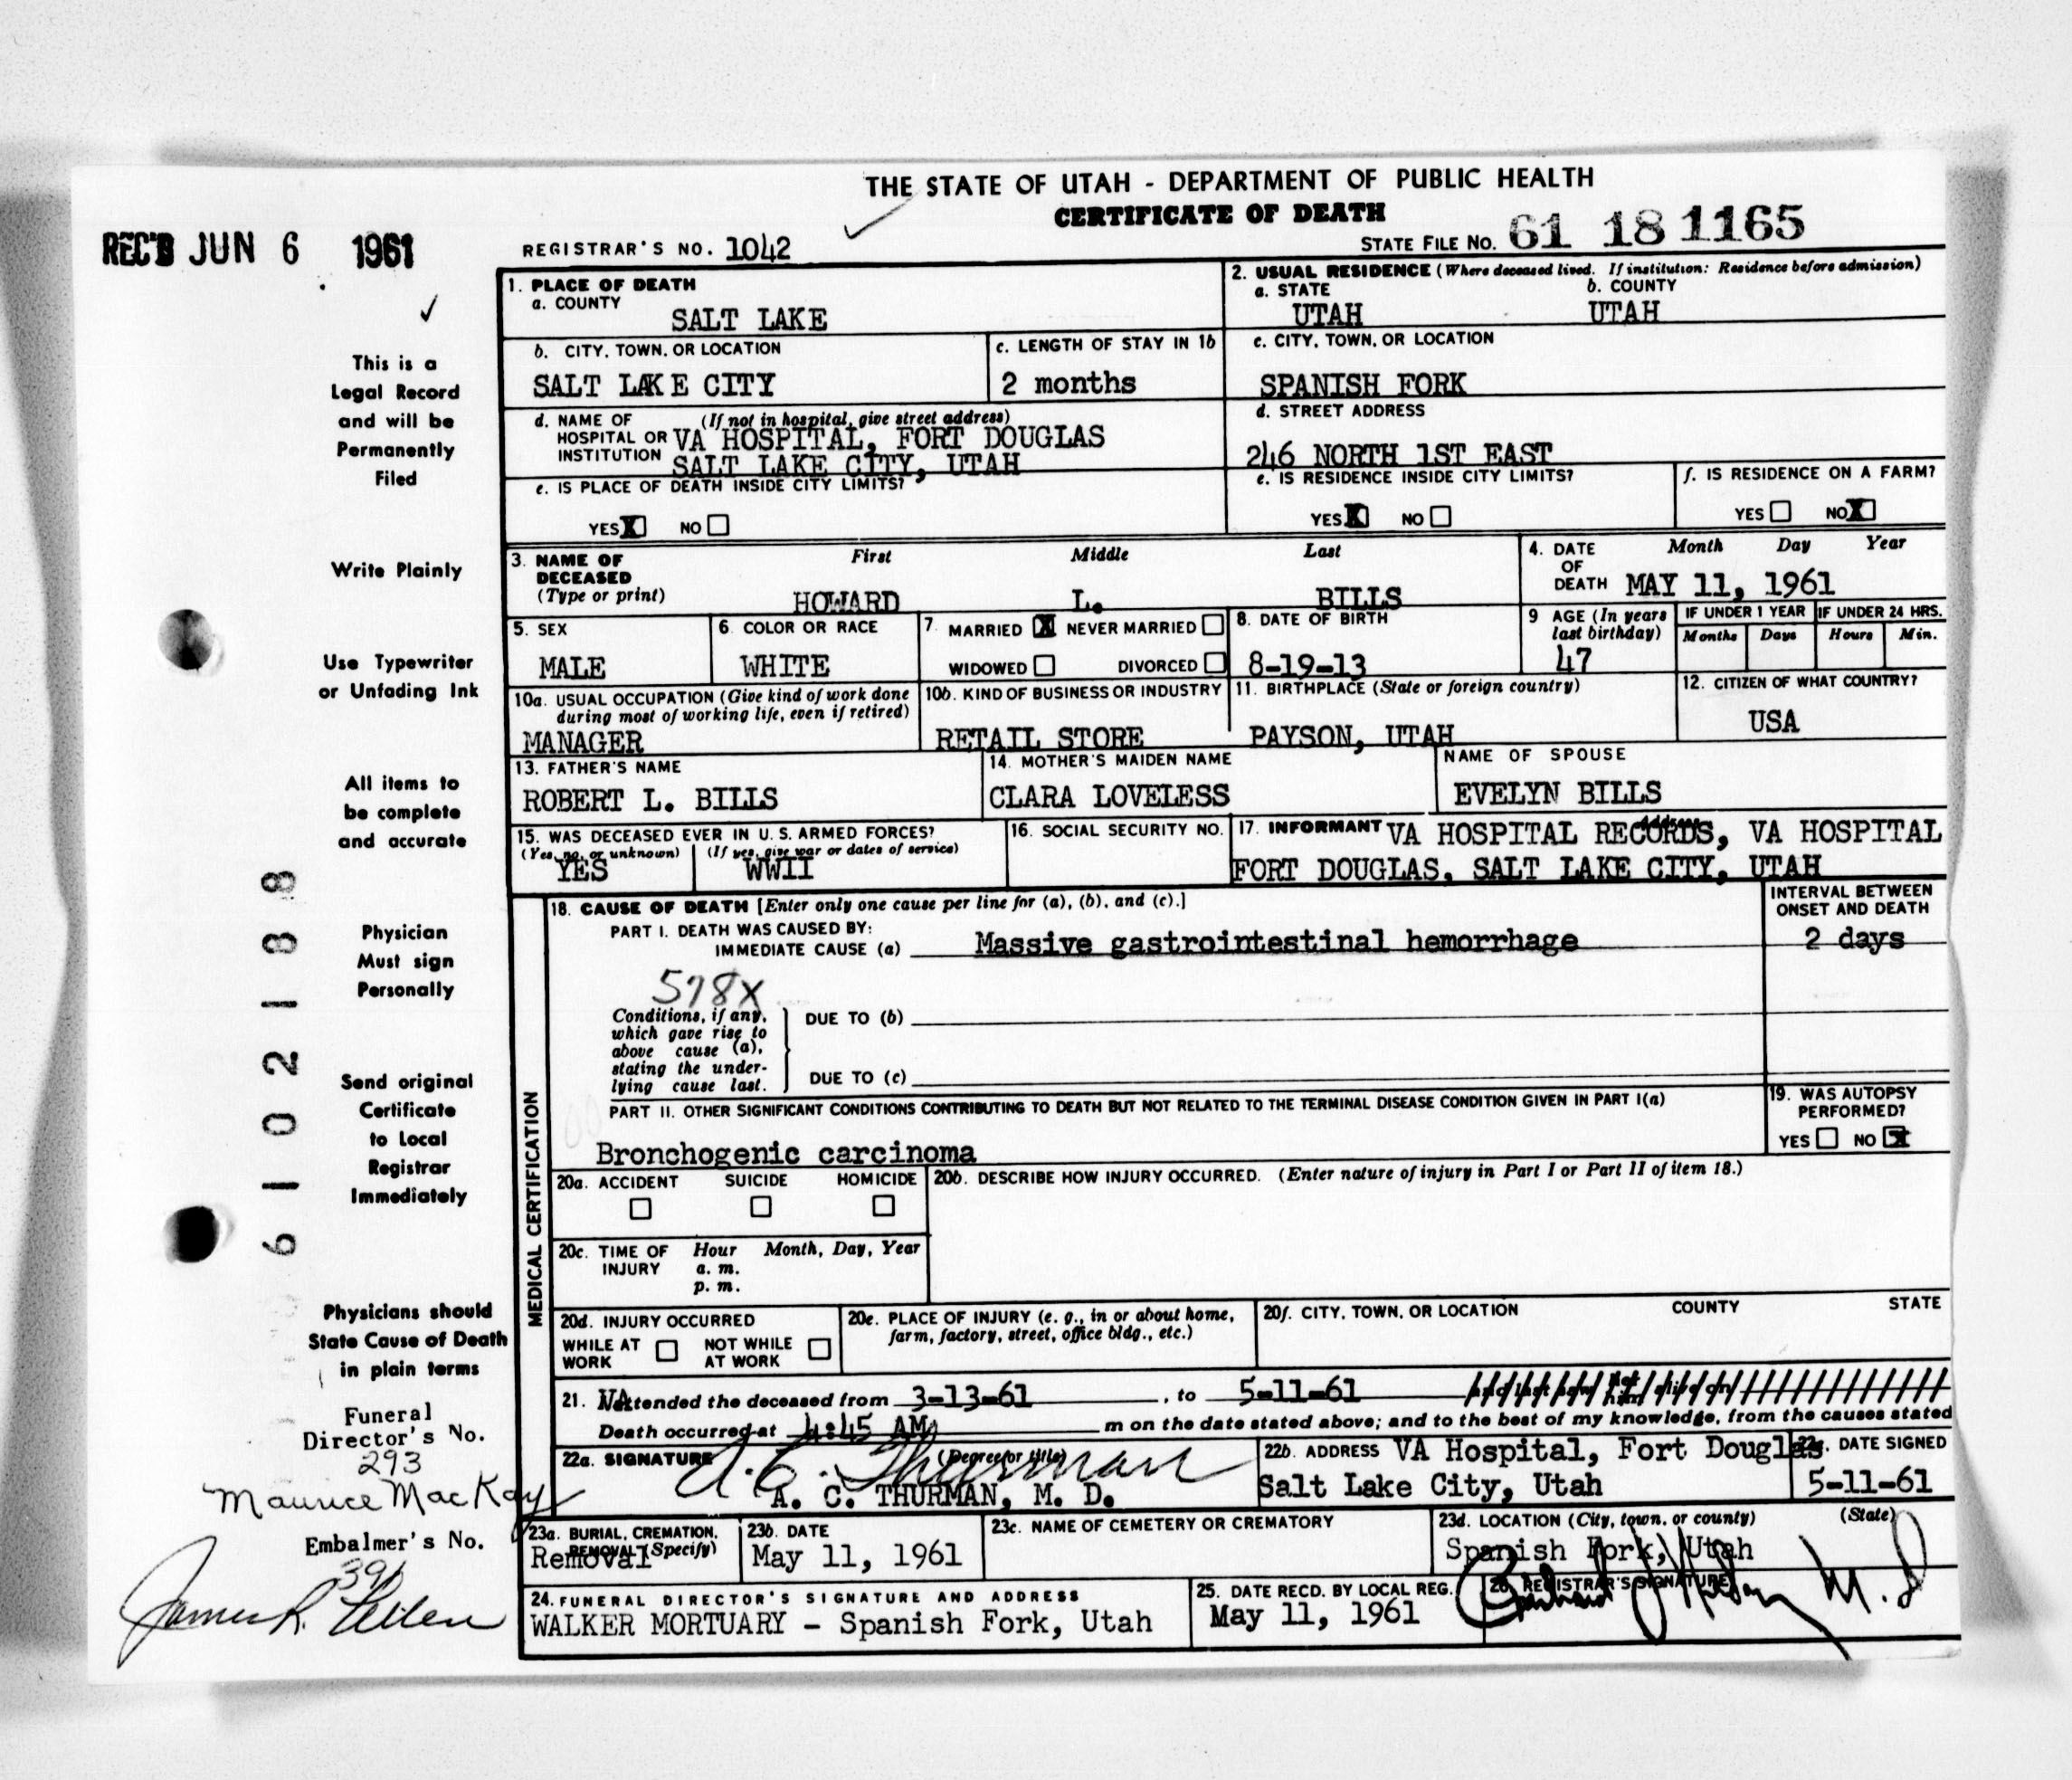 THE STATE OF UTAH - DEPARTMENT OF PUBLIC HEALTH
CERTIFICATE OF DEATH
REC'D JUN 6 1961
REGISTRAR'S NO. 1042
STATE FILE NO. 61 18 1165
This is a
Legal Record
and will be
Permanently
Filed
Write Plainly
Use Typewriter
or Unfading Ink
All items to
be complete
and accurate
Physician
Must sign
Personally
Send original
Certificate
to Local
Registrar
Immediately
Physicians should
State Cause of Death
in plain terms
Funeral
Director's No.
293
Maurice MacKay
Embalmer's No.
391
James R.
6102188
1. PLACE OF DEATH
a. COUNTY
SALT LAKE
2. USUAL RESIDENCE (Where deceased lived. If institution: Residence before admission)
a. STATE b. COUNTY
UTAH UTAH
b. CITY, TOWN, OR LOCATION
SALT LAKE CITY
c. LENGTH OF STAY IN 1b
2 months
c. CITY, TOWN, OR LOCATION
SPANISH FORK
d. NAME OF (If not in hospital, give street address)
HOSPITAL OR VA HOSPITAL, FORT DOUGLAS
INSTITUTION SALT LAKE CITY, UTAH
d. STREET ADDRESS
246 NORTH 1ST EAST
e. IS PLACE OF DEATH INSIDE CITY LIMITS?
YES X NO
e. IS RESIDENCE INSIDE CITY LIMITS?
YES X NO
f. IS RESIDENCE ON A FARM?
YES NO X
3. NAME OF First Middle Last
DECEASED
(Type or print) HOWARD L. BILLS
4. DATE Month Day Year
OF
DEATH MAY 11, 1961
5. SEX
MALE
6. COLOR OR RACE
WHITE
7. MARRIED X NEVER MARRIED
WIDOWED DIVORCED
8. DATE OF BIRTH
8-19-13
9 AGE (In years
last birthday)
47
IF UNDER 1 YEAR IF UNDER 24 HRS.
Months Days Hours Min.
10a. USUAL OCCUPATION (Give kind of work done
during most of working life, even if retired)
MANAGER
10b. KIND OF BUSINESS OR INDUSTRY
RETAIL STORE
11. BIRTHPLACE (State or foreign country)
PAYSON, UTAH
12. CITIZEN OF WHAT COUNTRY?
USA
13. FATHER'S NAME
ROBERT L. BILLS
14. MOTHER'S MAIDEN NAME
CLARA LOVELESS
NAME OF SPOUSE
EVELYN BILLS
15. WAS DECEASED EVER IN U. S. ARMED FORCES?
(Yes, no, or unknown) (If yes, give war or dates of service)
YES WWII
16. SOCIAL SECURITY NO.
17. INFORMANT Address
VA HOSPITAL RECORDS, VA HOSPITAL
FORT DOUGLAS, SALT LAKE CITY, UTAH
MEDICAL CERTIFICATION
18. CAUSE OF DEATH [Enter only one cause per line for (a), (b), and (c).]
PART I. DEATH WAS CAUSED BY:
IMMEDIATE CAUSE (a) Massive gastrointestinal hemorrhage
INTERVAL BETWEEN
ONSET AND DEATH
2 days
578X
Conditions, if any,
which gave rise to
above cause (a),
stating the under-
lying cause last.
DUE TO (b)
DUE TO (c)
PART II. OTHER SIGNIFICANT CONDITIONS CONTRIBUTING TO DEATH BUT NOT RELATED TO THE TERMINAL DISEASE CONDITION GIVEN IN PART I(a)
Bronchogenic carcinoma
19. WAS AUTOPSY
PERFORMED?
YES NO X
20a. ACCIDENT SUICIDE HOMICIDE
20b. DESCRIBE HOW INJURY OCCURRED. (Enter nature of injury in Part I or Part II of item 18.)
20c. TIME OF Hour Month, Day, Year
INJURY a. m.
p. m.
20d. INJURY OCCURRED
WHILE AT NOT WHILE
WORK AT WORK
20e. PLACE OF INJURY (e. g., in or about home,
farm, factory, street, office bldg., etc.)
20f. CITY, TOWN, OR LOCATION COUNTY STATE
21. VA attended the deceased from 3-13-61, to 5-11-61
Death occurred at 4:45 AM m on the date stated above; and to the best of my knowledge, from the causes stated
22a. SIGNATURE (Degree or title)
A. C. Thurman
A. C. THURMAN, M. D.
22b. ADDRESS VA Hospital, Fort Douglas
Salt Lake City, Utah
22c. DATE SIGNED
5-11-61
23a. BURIAL, CREMATION,
REMOVAL (Specify)
Removal
23b. DATE
May 11, 1961
23c. NAME OF CEMETERY OR CREMATORY
23d. LOCATION (City, town, or county) (State)
Spanish Fork, Utah
24. FUNERAL DIRECTOR'S SIGNATURE AND ADDRESS
WALKER MORTUARY - Spanish Fork, Utah
25. DATE RECD. BY LOCAL REG.
May 11, 1961
26. REGISTRAR'S SIGNATURE
M.D